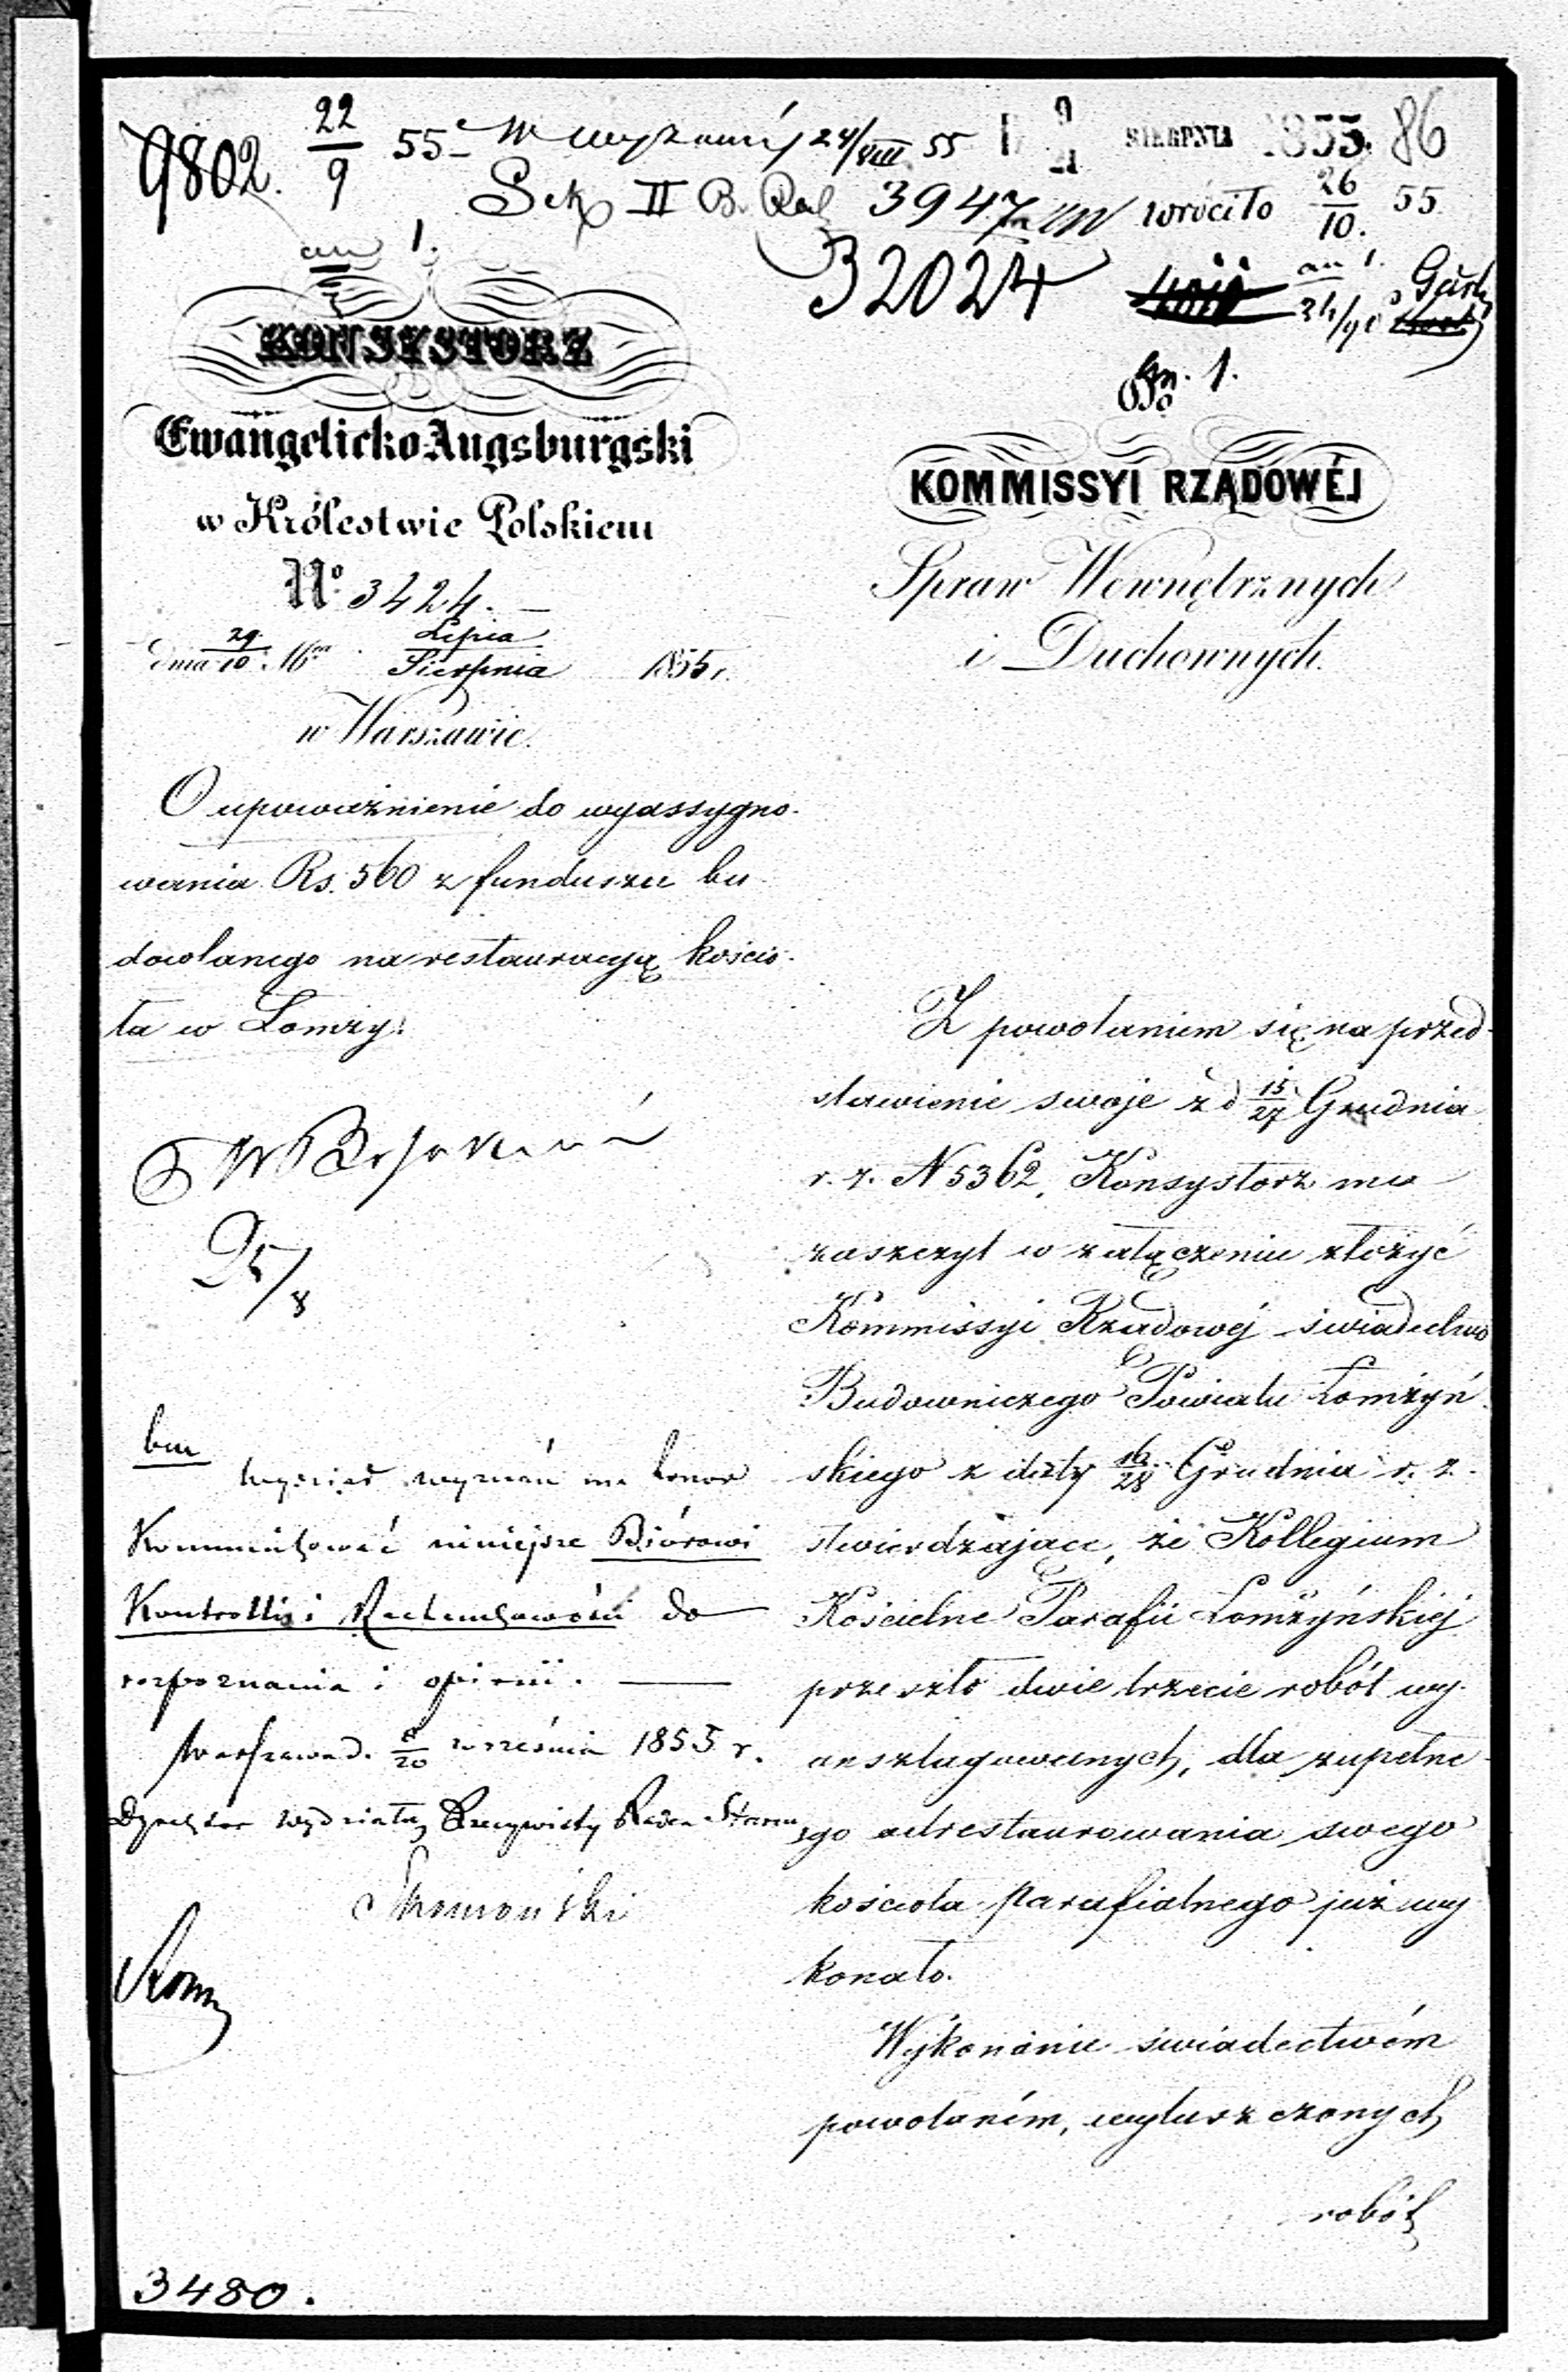 9802. 22/9 55 24/VIII 55 SIERPNIA 1855. 86
II 3947 wróciło 26/10. 55
an 1.
32024
an 1.
KONSYSTORZ
Ewangelicko Augsburgski
w Królestwie Polskiem
No 3424.
dnia 29/10 Mca Lipca/Sierpnia 1855 r.
w Warszawie.
O upoważnienie do wyassygno-
wania Rs. 560 z funduszu bu
dowlanego na restauracyą kościo-
ła w Łomzy.
25/8
Kommunikować niniejsze Biórowi
Kontrolli i Rachunkowości do
rozpoznania i opinii.
Warszawa d. 8/20 września 1855 r.
Dyrektor Wydziału, Rzeczywisty Radca Stanu
3480.
an. 1.
KOMMISSYI RZĄDOWÉJ
Spraw Wewnętrznych
i Duchownych.
Z powołaniem się na przed-
stawienie swoje z d 15/27 Grudnia
r. z. N 5362, Konsystorz ma
zaszczyt w załączeniu złożyć
Kommissyi Rządowej świadectwo
Budowniczego Powiatu Łomżyń
skiego z daty 16/28 Grudnia r. z.
stwierdzające, że Kollegium
Kościelne Parafii Łomżyńskiej
przeszło dwie trzecie robót wy-
anszlagowanych, dla zupełne-
go odrestaurowania swego
kościoła parafialnego już wy
konało.
Wykonanie świadectwém
powołaném, wyłuszczonych
robót